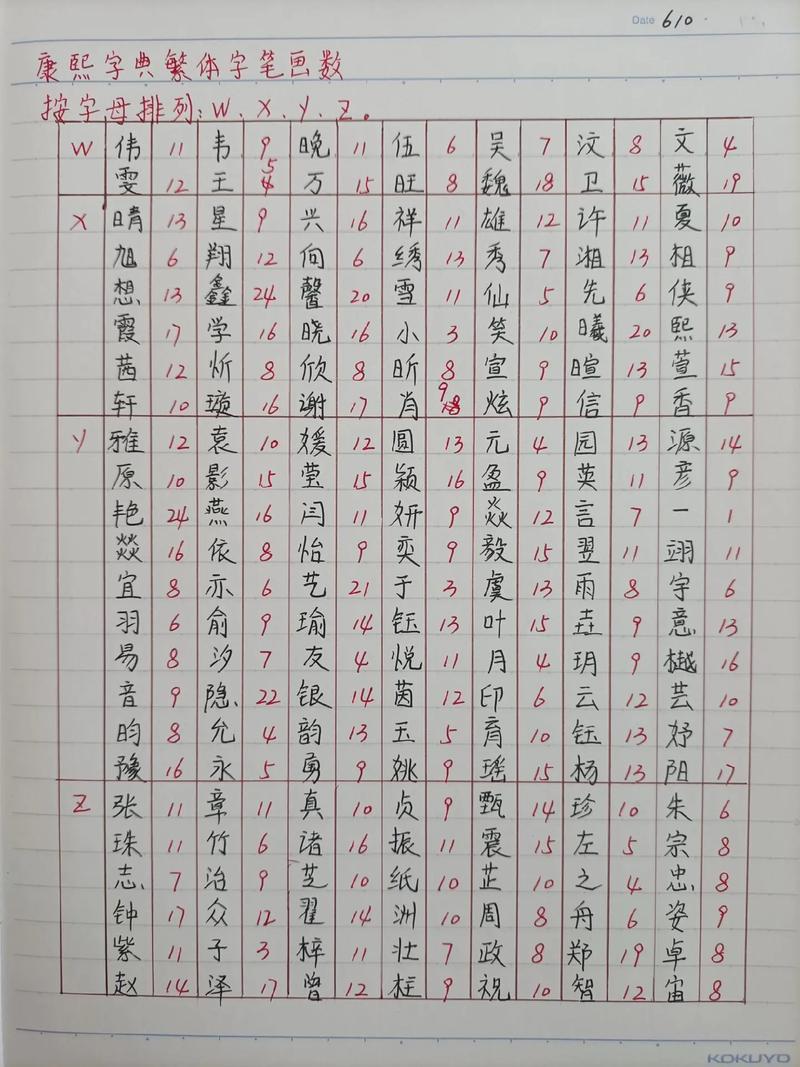 Date 610
康熙字典繁体字笔画数
按字母排列:W、X、Y、Z。
W 伟 11 韦 9 晚 11 伍 6 吴 7 汶 8 文 4
雯 12 王 5 万 15 旺 8 魏 18 卫 15 薇 19
X 晴 13 星 9 兴 16 祥 11 雄 12 许 11 夏 10
旭 6 翔 12 向 6 绣 13 秀 7 湘 13 相 9
想 13 鑫 24 馨 20 雪 11 仙 5 先 6 侠 9
霞 17 学 16 晓 16 小 3 笑 10 曦 20 熙 13
茜 12 炘 8 欣 8 昕 8 宣 9 暄 13 萱 15
轩 10 璇 16 谢 17 肖 9 炫 9 信 9 香 9
Y 雅 12 袁 10 媛 12 圆 13 元 4 园 13 源 14
原 10 影 15 莹 15 颖 16 盈 9 英 11 彦 9
艳 24 燕 16 闫 11 妍 9 焱 12 言 7 一 1
燚 16 依 8 怡 9 奕 9 毅 15 翌 11 翊 11
宜 8 亦 6 艺 21 于 3 虞 13 雨 8 宇 6
羽 6 俞 9 瑜 14 钰 13 叶 15 垚 9 意 13
易 8 汐 7 友 4 悦 11 月 4 玥 9 樾 16
音 9 隐 22 银 14 茵 12 印 6 云 12 芸 10
昀 8 允 4 韵 13 玉 5 育 10 钰 13 妤 7
豫 16 永 5 勇 9 姚 9 瑶 15 杨 13 阳 17
Z 张 11 章 11 真 10 贞 9 甄 14 珍 10 朱 6
珠 11 竹 6 诸 16 振 11 震 15 左 5 宗 8
志 7 治 9 芝 10 纸 10 芷 10 之 4 忠 8
钟 17 众 12 翟 14 洲 10 周 8 舟 6 姿 9
紫 11 子 3 梓 11 壮 7 政 8 郑 19 卓 8
赵 14 泽 17 曾 12 柱 9 祝 10 智 12 宙 8
KOKUYO